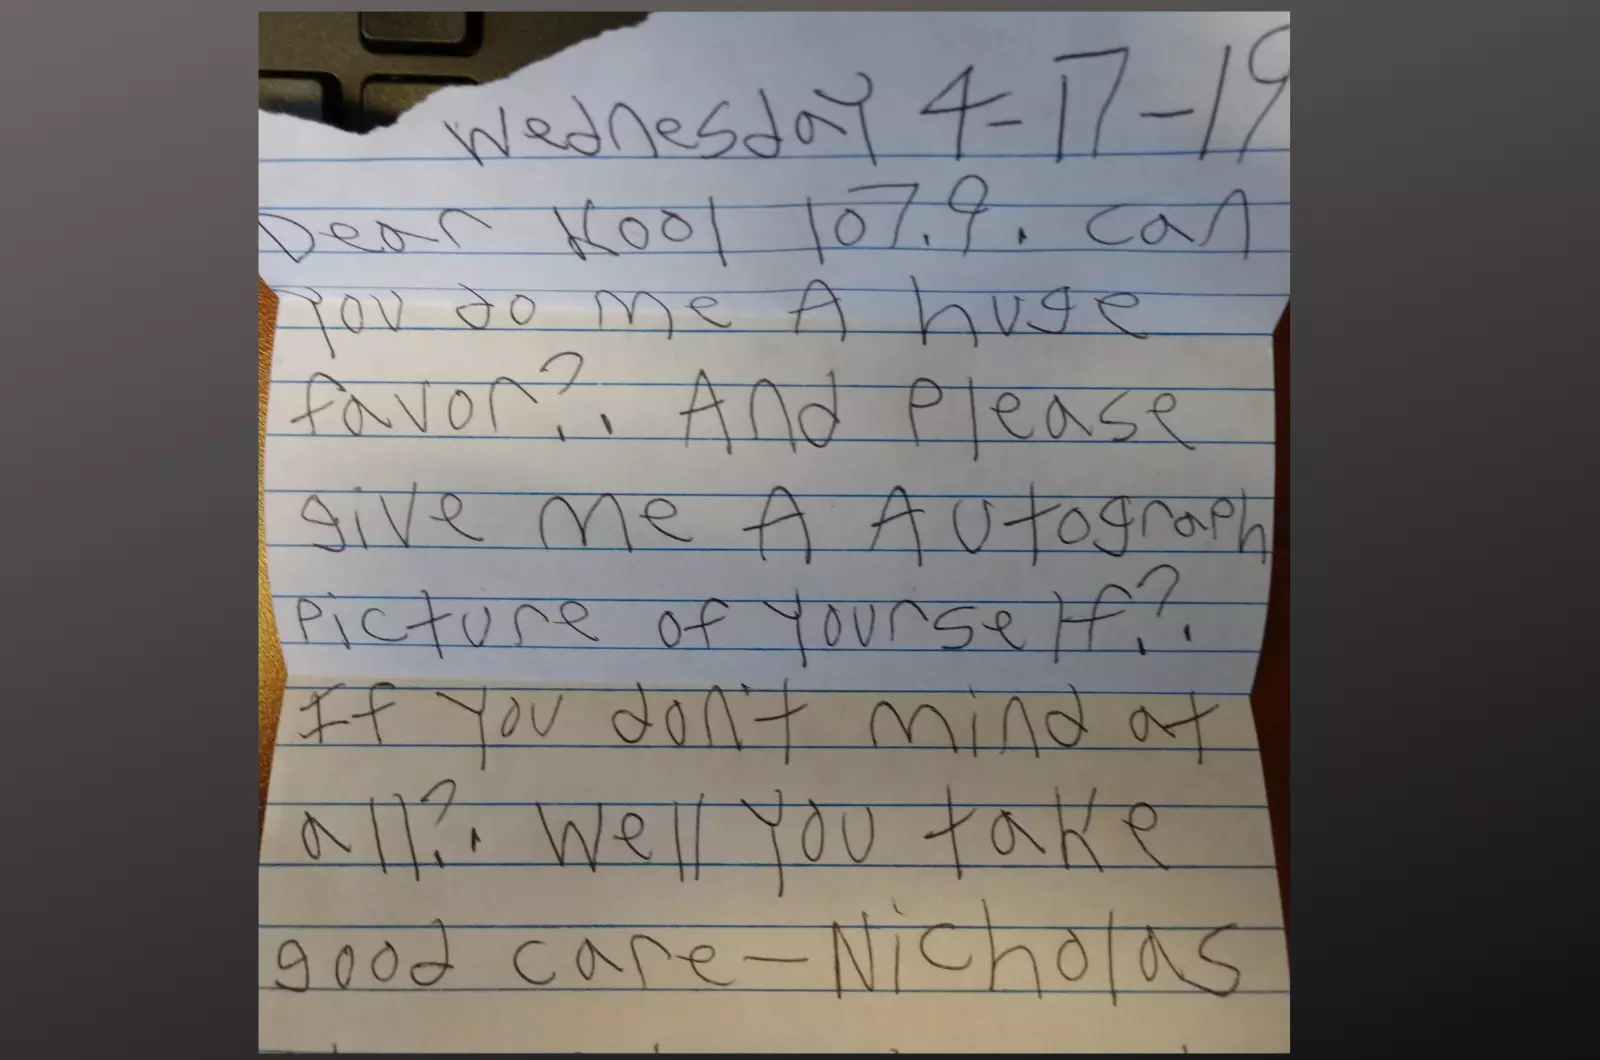 Wednesday 4-17-19
Dear Kool 107.9. can
you do me A huge
favor?. And Please
give me A Autograph
Picture of Yourself?.
If you don't mind at
all?. Well you take
good care-Nicholas